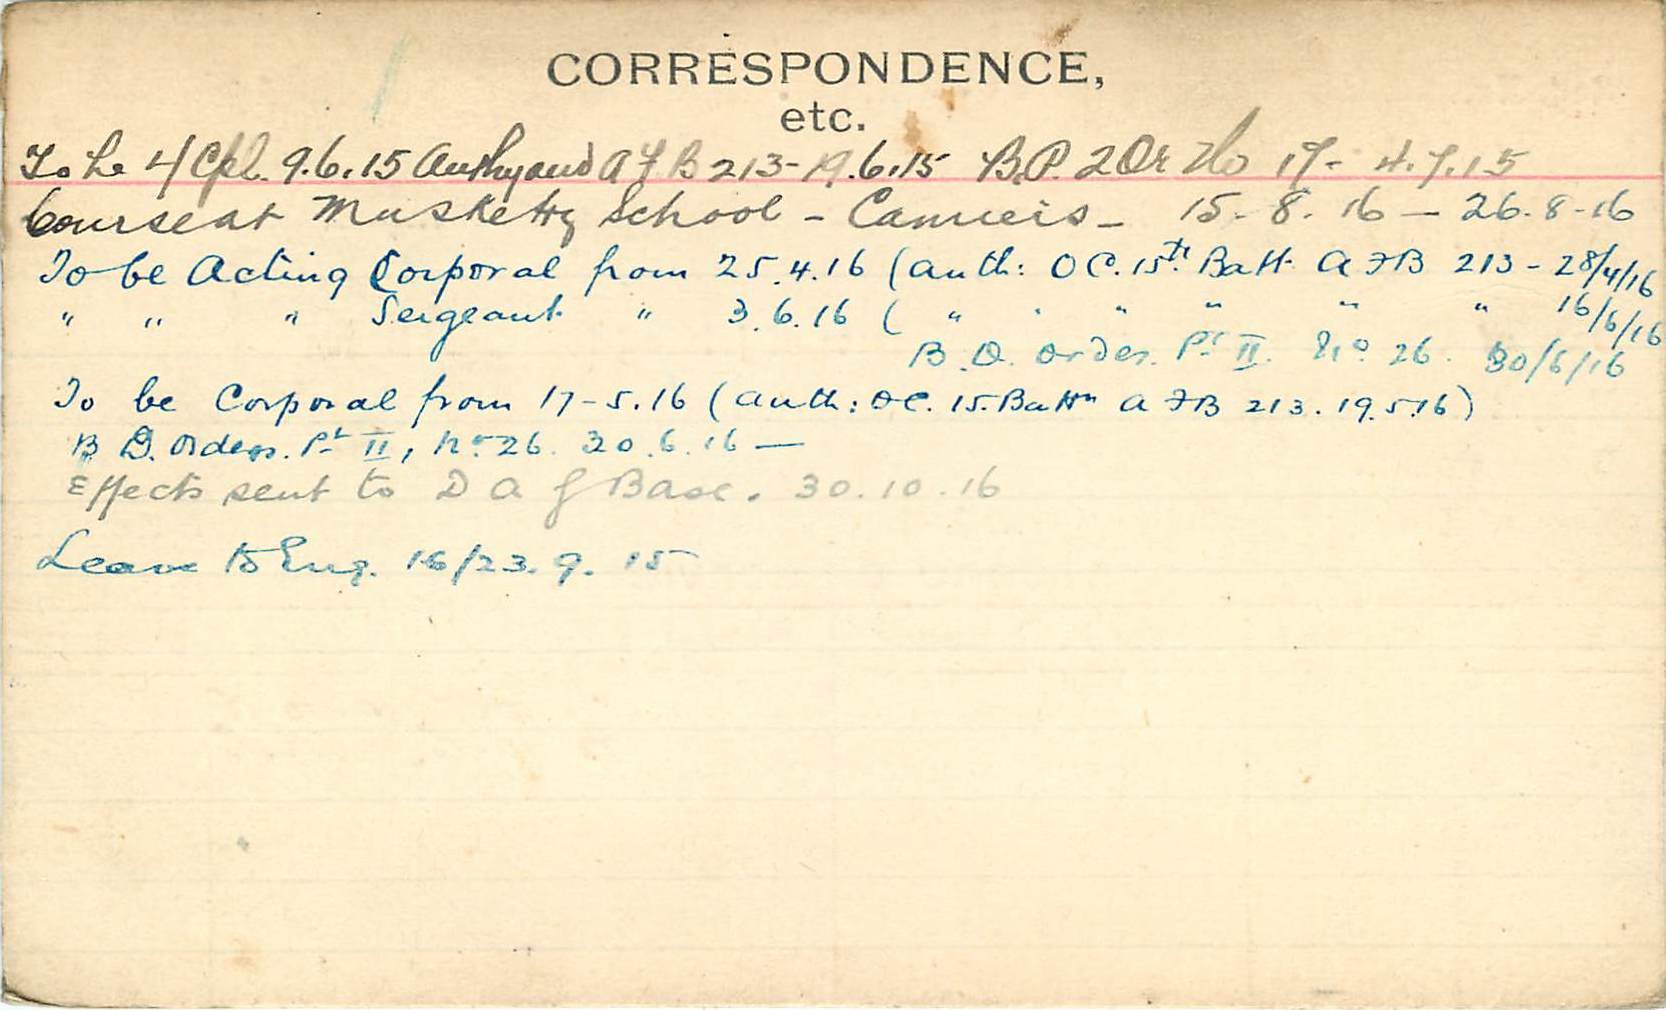 CORRESPONDENCE,
etc.
To be L/Cpl. 9.6.15 A F B 213 - 19.6.15 17 - 4.7.15
Course at Musketry School - Camiers - 15. 8. 16 — 26. 8 - 16
To be Acting Corporal from 25.4.16 (auth: OC. 15th Batt. A F B 213 - 28/4/16
" " " Sergeant " 3.6.16 ( " " " " " " 16/6/16
B. D. order. Pt II. No 26. 30/6/16
To be Corporal from 17-5.16 (auth: OC. 15. Battn A F B 213. 19.5.16)
B D. Orders. Pt II, No 26. 30.6.16 —
Effects sent to D A G Base. 30.10.16
Leave to Eng. 16/23. 9. 15